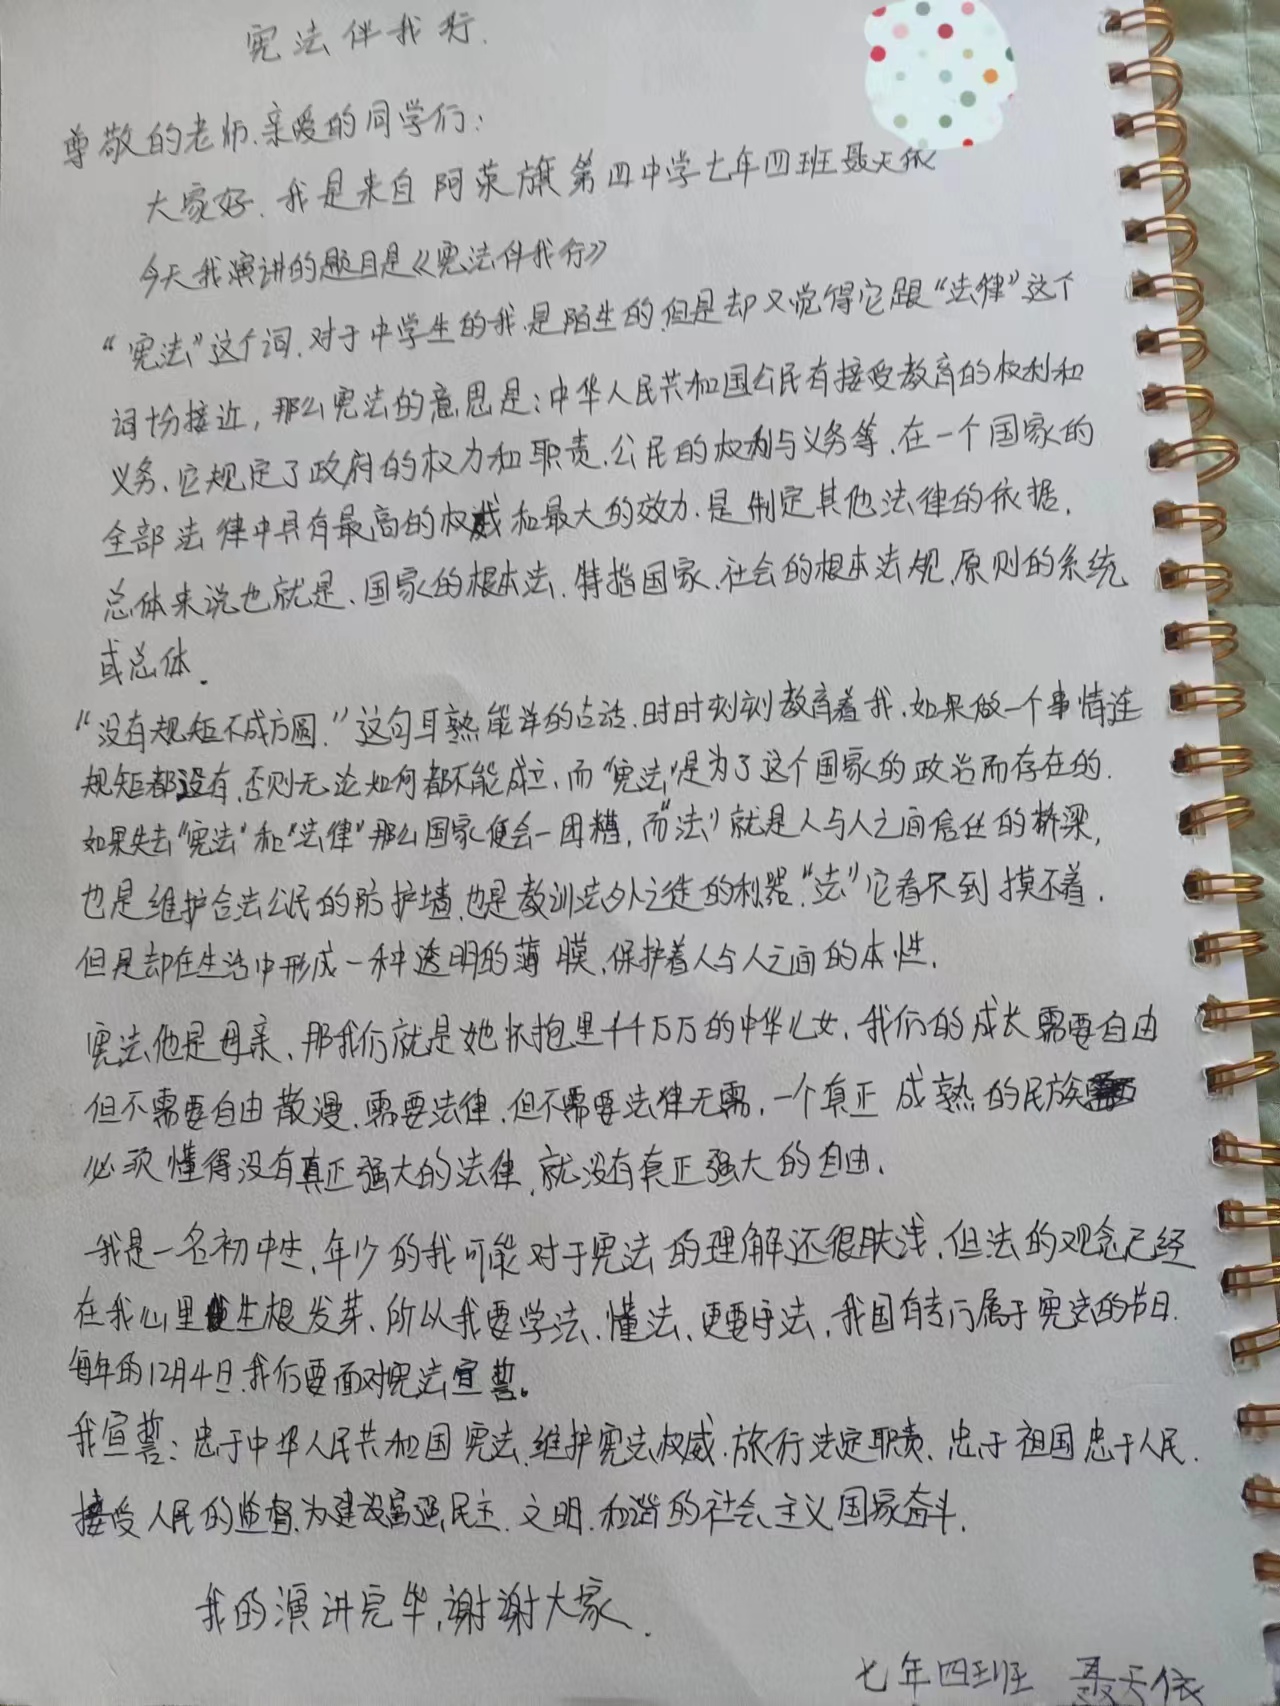 宪法伴我行.
尊敬的老师.亲爱的同学们：
大家好.我是来自阿荣旗第四中学七年四班聂天依
今天我演讲的题目是《宪法伴我行》
“宪法”这个词.对于中学生的我.是陌生的.但是却又觉得它跟“法律”这个
词十分接近，那么宪法的意思是：中华人民共和国公民有接受教育的权利和
义务、它规定了政府的权力和职责.公民的权利与义务等.在一个国家的
全部法律中具有最高的权威和最大的效力.是制定其他法律的依据.
总体来说也就是、国家的根本法.特指国家.社会的根本法规.原则的系统
或总体.
“没有规矩不成方圆.”这句耳熟能详的古话.时时刻刻教育着我.如果做一个事情连
规矩都没有.否则无论如何都不能成立.而“宪法”是为了这个国家的政治而存在的.
如果失去“宪法”和“法律”那么国家便会一团糟，而“法”就是人与人之间信任的桥梁，
也是维护合法公民的防护墙.也是教训法外之徒的利器.“法”它看不到摸不着.
但是却在生活中形成一种透明的薄膜.保护着人与人之间的本性.
宪法他是母亲、那我们就是她怀抱里千千万万的中华儿女.我们的成长需要自由
但不需要自由散漫.需要法律.但不需要法律无需.一个真正成熟的民族
必须懂得没有真正强大的法律.就没有真正强大的自由.
我是一名初中生.年少的我可能对于宪法的理解还很肤浅.但法的观念已经
在我心里生根发芽、所以我要学法、懂法、更要守法，我国有专门属于宪法的节日.
每年的12月4日.我们要面对宪法宣誓。
我宣誓：忠于中华人民共和国宪法.维护宪法权威.旅行法定职责、忠于祖国忠于人民.
接受人民的监督.为建设富强民主.文明.和谐的社会主义国家奋斗.
我的演讲完毕，谢谢大家.
七年四班 聂天依